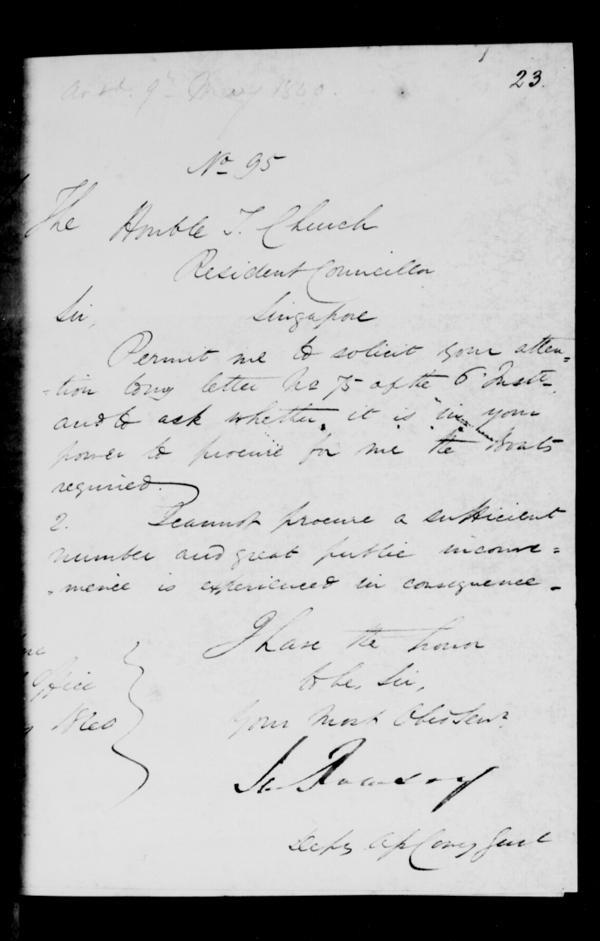 23.
Ansd. 9th May 1840.
No 95
The Honble T. Church
Resident Councillor
Sir, Singapore
Permit me to solicit your atten=
=tion to my letter No 75 of the 6 Inst.
and to ask whether it is in your
power to procure for me the Boats
required.
2. I cannot procure a sufficient
number and great public inconve=
=nience is experienced in consequence.
I have the honor
Office
to be, Sir,
1840
Your Most Obed Servt
Ramsay
Depy Commy Genl